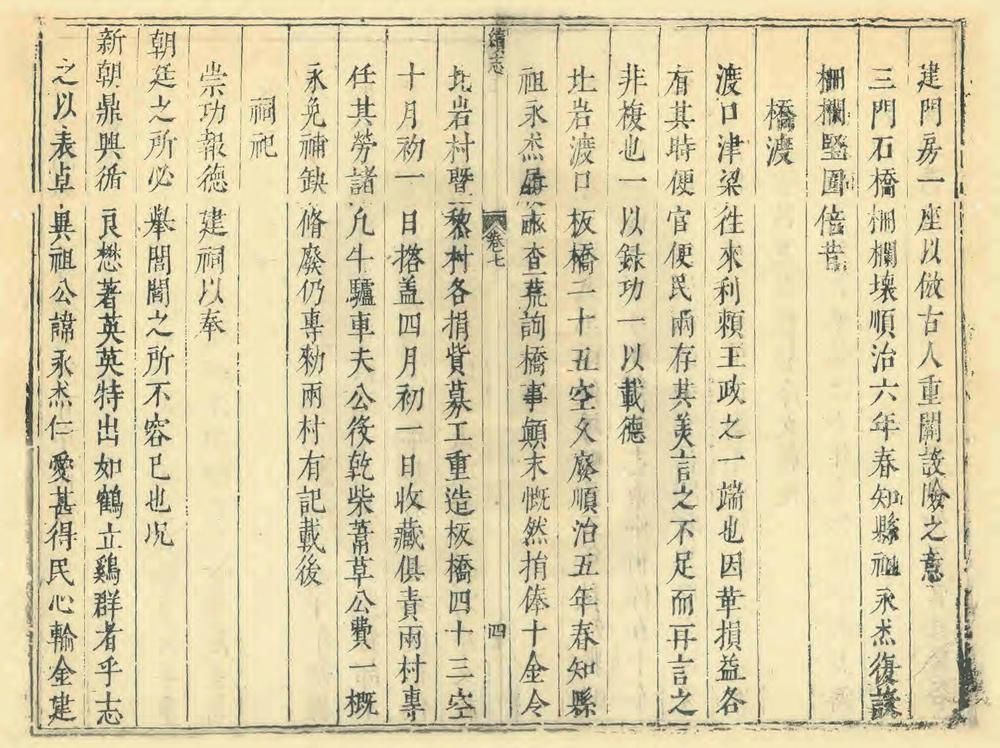 建門房一座以倣古人重關設險之意
三門石橋柵欄壞順治六年春知縣祖永杰復設
柵欄豎固倍昔
橋渡
渡口津梁徃來利賴王政之一端也因革損益各
有其時便官便民兩存其美言之不足而再言之
非複也一以錄功一以載德
北岩渡口板橋二十五空久廢順治五年春知縣
祖永杰查荒詢橋事顛末慨然捐俸十金令
北岩村暨黎村各捐貲募工重造板橋四十三空
續志 卷七 四
十月初一日搭盖四月初一日收藏俱責兩村專
任其勞諸凡牛驢車夫公役乾柴蒿草公費一概
永免補缺脩廢仍專勑兩村有記載後
祠祀
崇功報德建祠以奉
朝廷之所必舉閭閻之所不容已也况
新朝鼎興循良懋著英英特出如鶴立鷄群者乎志
之以表卓異祖公諱永杰仁愛甚得民心輸金建